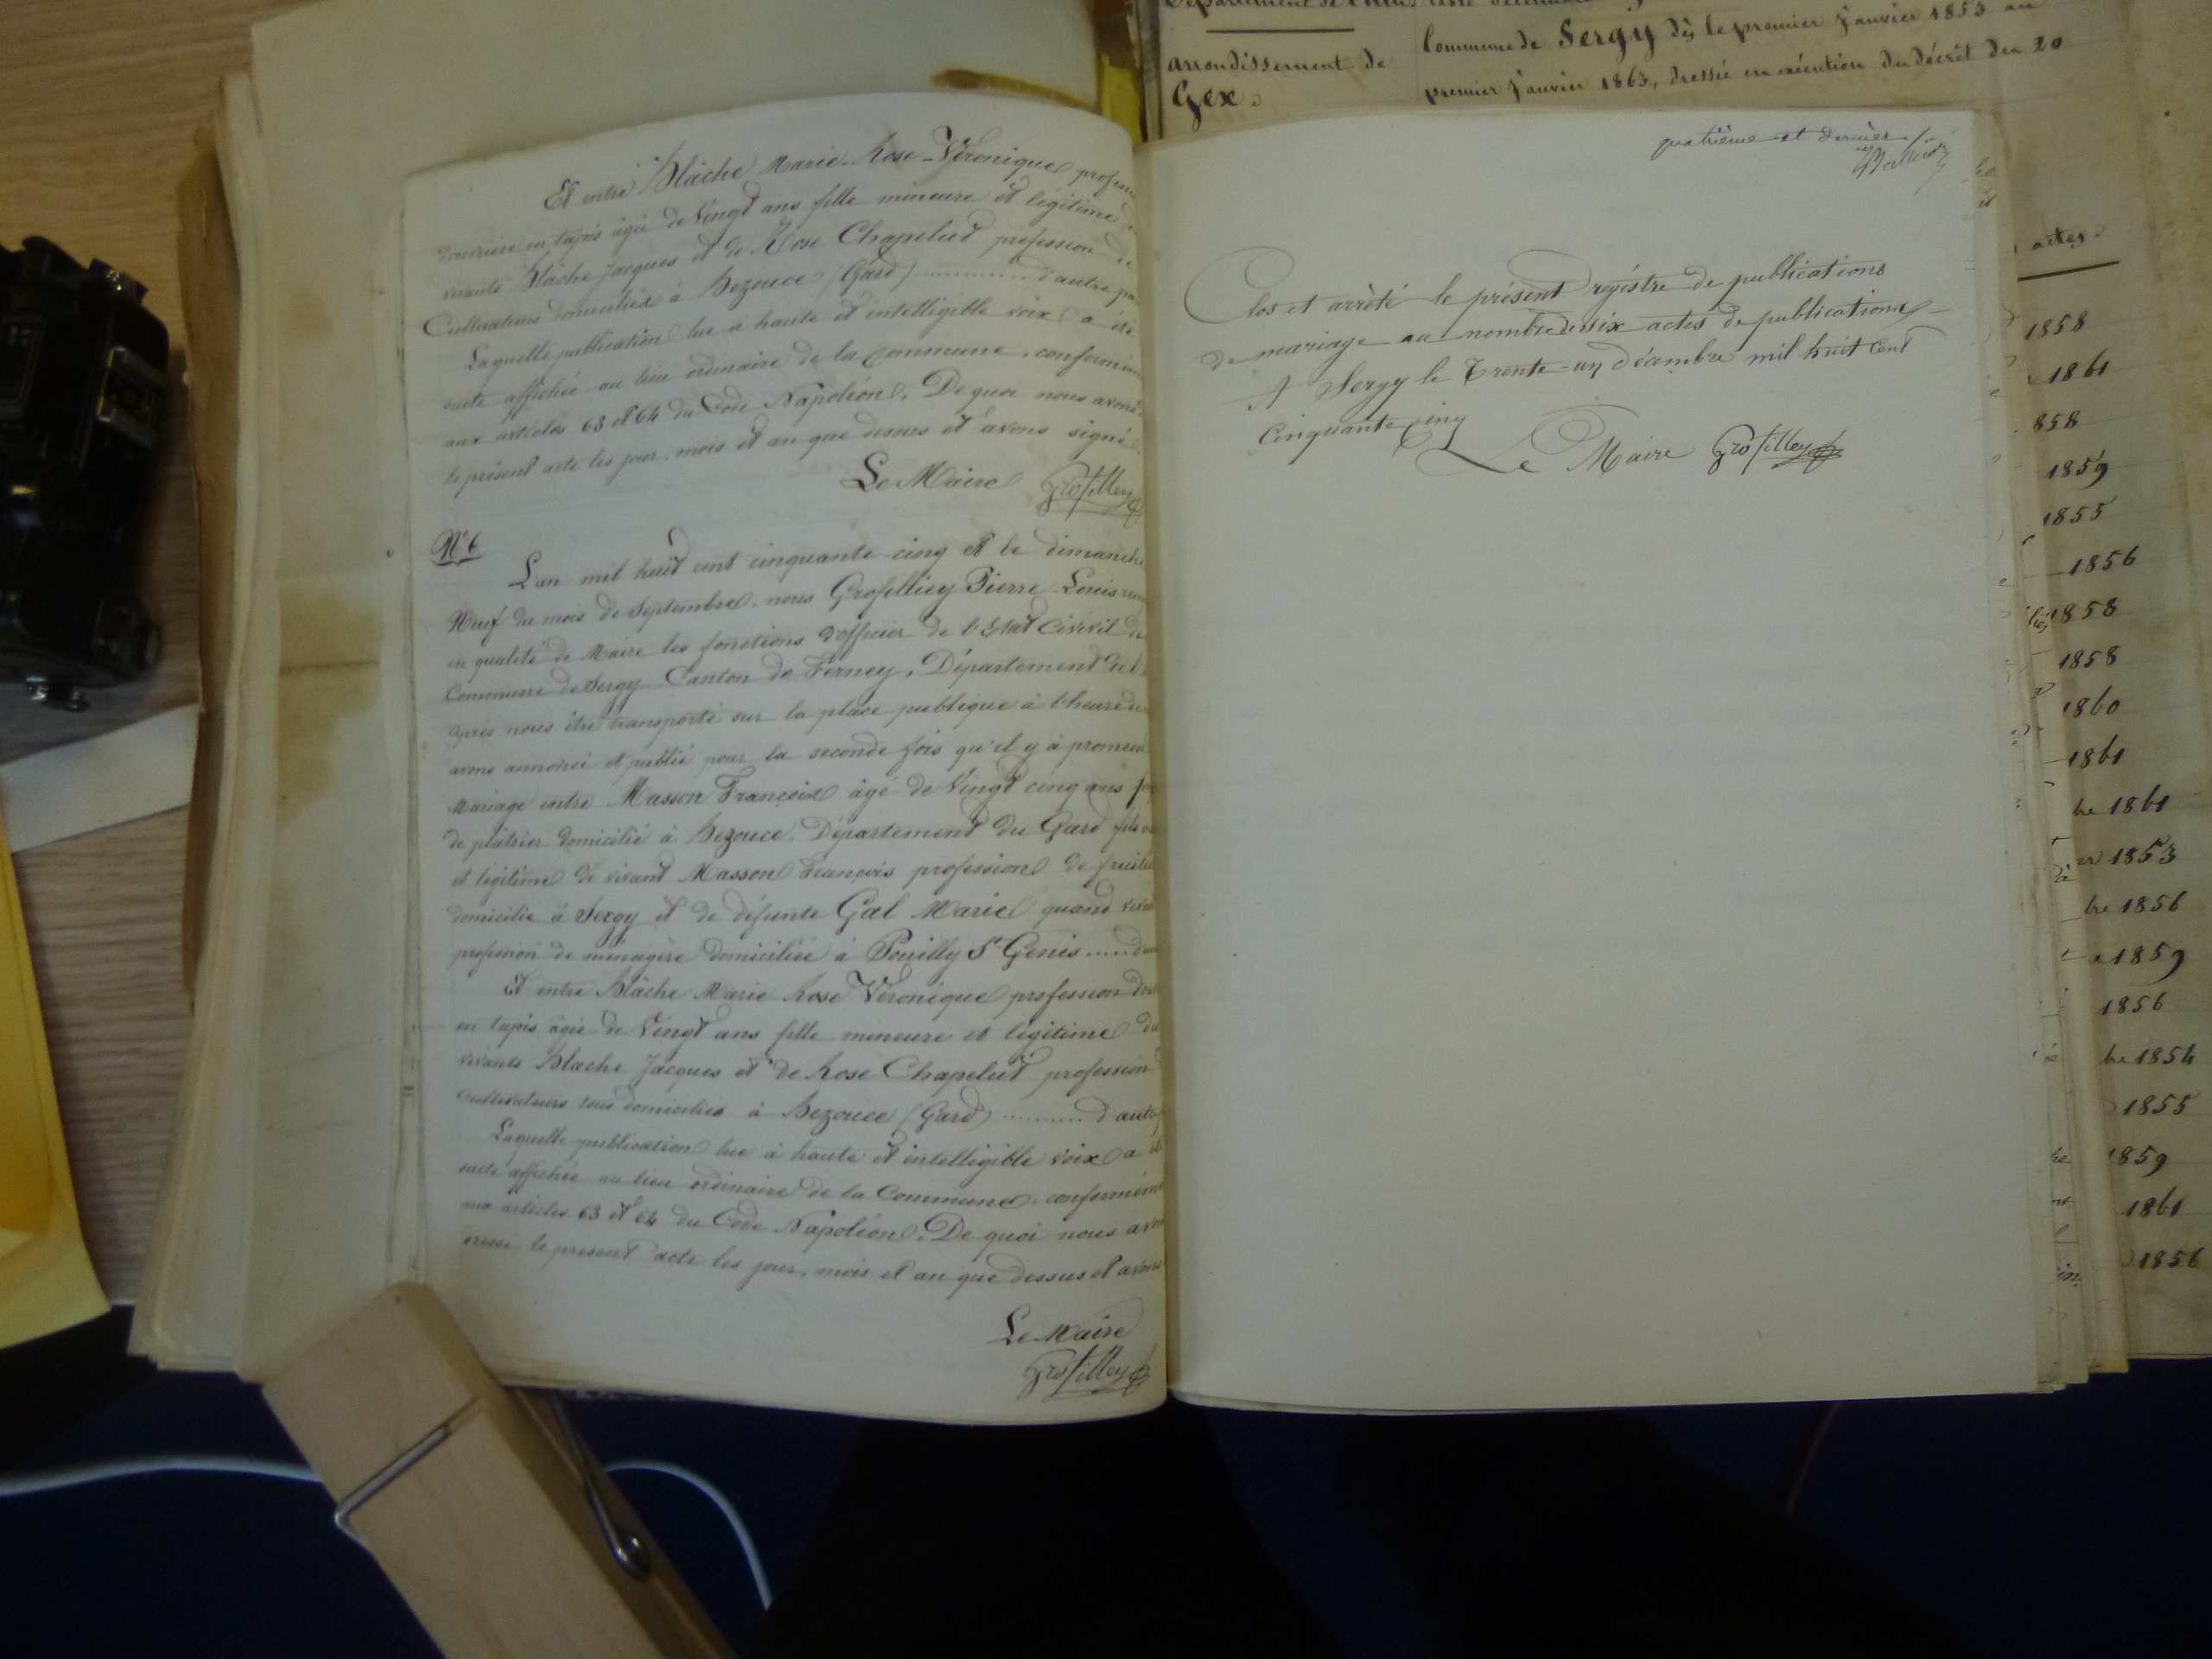 Et entre Blâche Marie-Rose-Véronique profess
d'ouvrière en tapis âgée de Vingt ans fille mineure et légitime
vivants Blâche Jacques et de Rose Chapelut profession de
Cultivateurs domiciliés à Bezouce (Gard) ............ d'autre pa
Laquelle publication lue à haute et intelligible voix a été
suite affichée au lieu ordinaire de la Commune, conformém
aux articles 63 et 64 du Code Napoléon. De quoi nous avons
le présent acte les jour, mois et an que dessus et avons signé.
Le Maire Grosfilley
N° 6
L'an mil huit cent cinquante-cinq et le dimanche
Neuf du mois de Septembre, nous Grosfilliey Pierre-Louis rem
en qualité de Maire les fonctions d'officier de l'Etat Civivil de
Commune de Sergy Canton de Ferney, Département de l
après nous être transporté sur la place publique à l'heure de
avons annoncé et publié pour la seconde fois qu'il y à promes
Mariage entre Masson François âgé de Vingt cinq ans p
de plâtrier domicilié à Bezouce. Département du Gard fils
et légitime de vivant Masson François profession de fruitie
domicilié à Sergy et de défunte Gal Marie quand viva
profession de ménagère domiciliée à Pouilly St Genis ..... d'un
Et entre Blâche Marie Rose Véronique profession d'ou
en tapis âgée de Vingt ans fille mineure et légitime de
vivants Blache Jacques et de Rose Chapelut profession
Cultivateurs tous domiciliés à Bezouce (Gard) .......... d'autr
Laquelle publication lue à haute et intelligible voix a ét
suite affichée au lieu ordinaire de la Commune, conformém
aux articles 63 et 64 du Code Napoléon. De quoi nous avo
dressé le présent acte les jour, mois et an que dessus et avons
Le Maire
Grosfilley
arrondissement de
Gex.
Commune de Sergy dès le premier Janvier 1853 au
premier Janvier 1863, dressée en exécution du décret du 20
quatrième et dernier
Clos et arrêté le présent registre de publications
de mariage au nombre de six actes de publications
A Sergy le Trente-un décembre mil huit Cent
Cinquante cinq
Le Maire Grosfilley
actes.
1858
1861
858
1859
1855
1856
1858
1858
1860
1861
bre 1861
er 1853
bre 1856
e 1859
1856
bre 1854
1855
1859
1861
1856